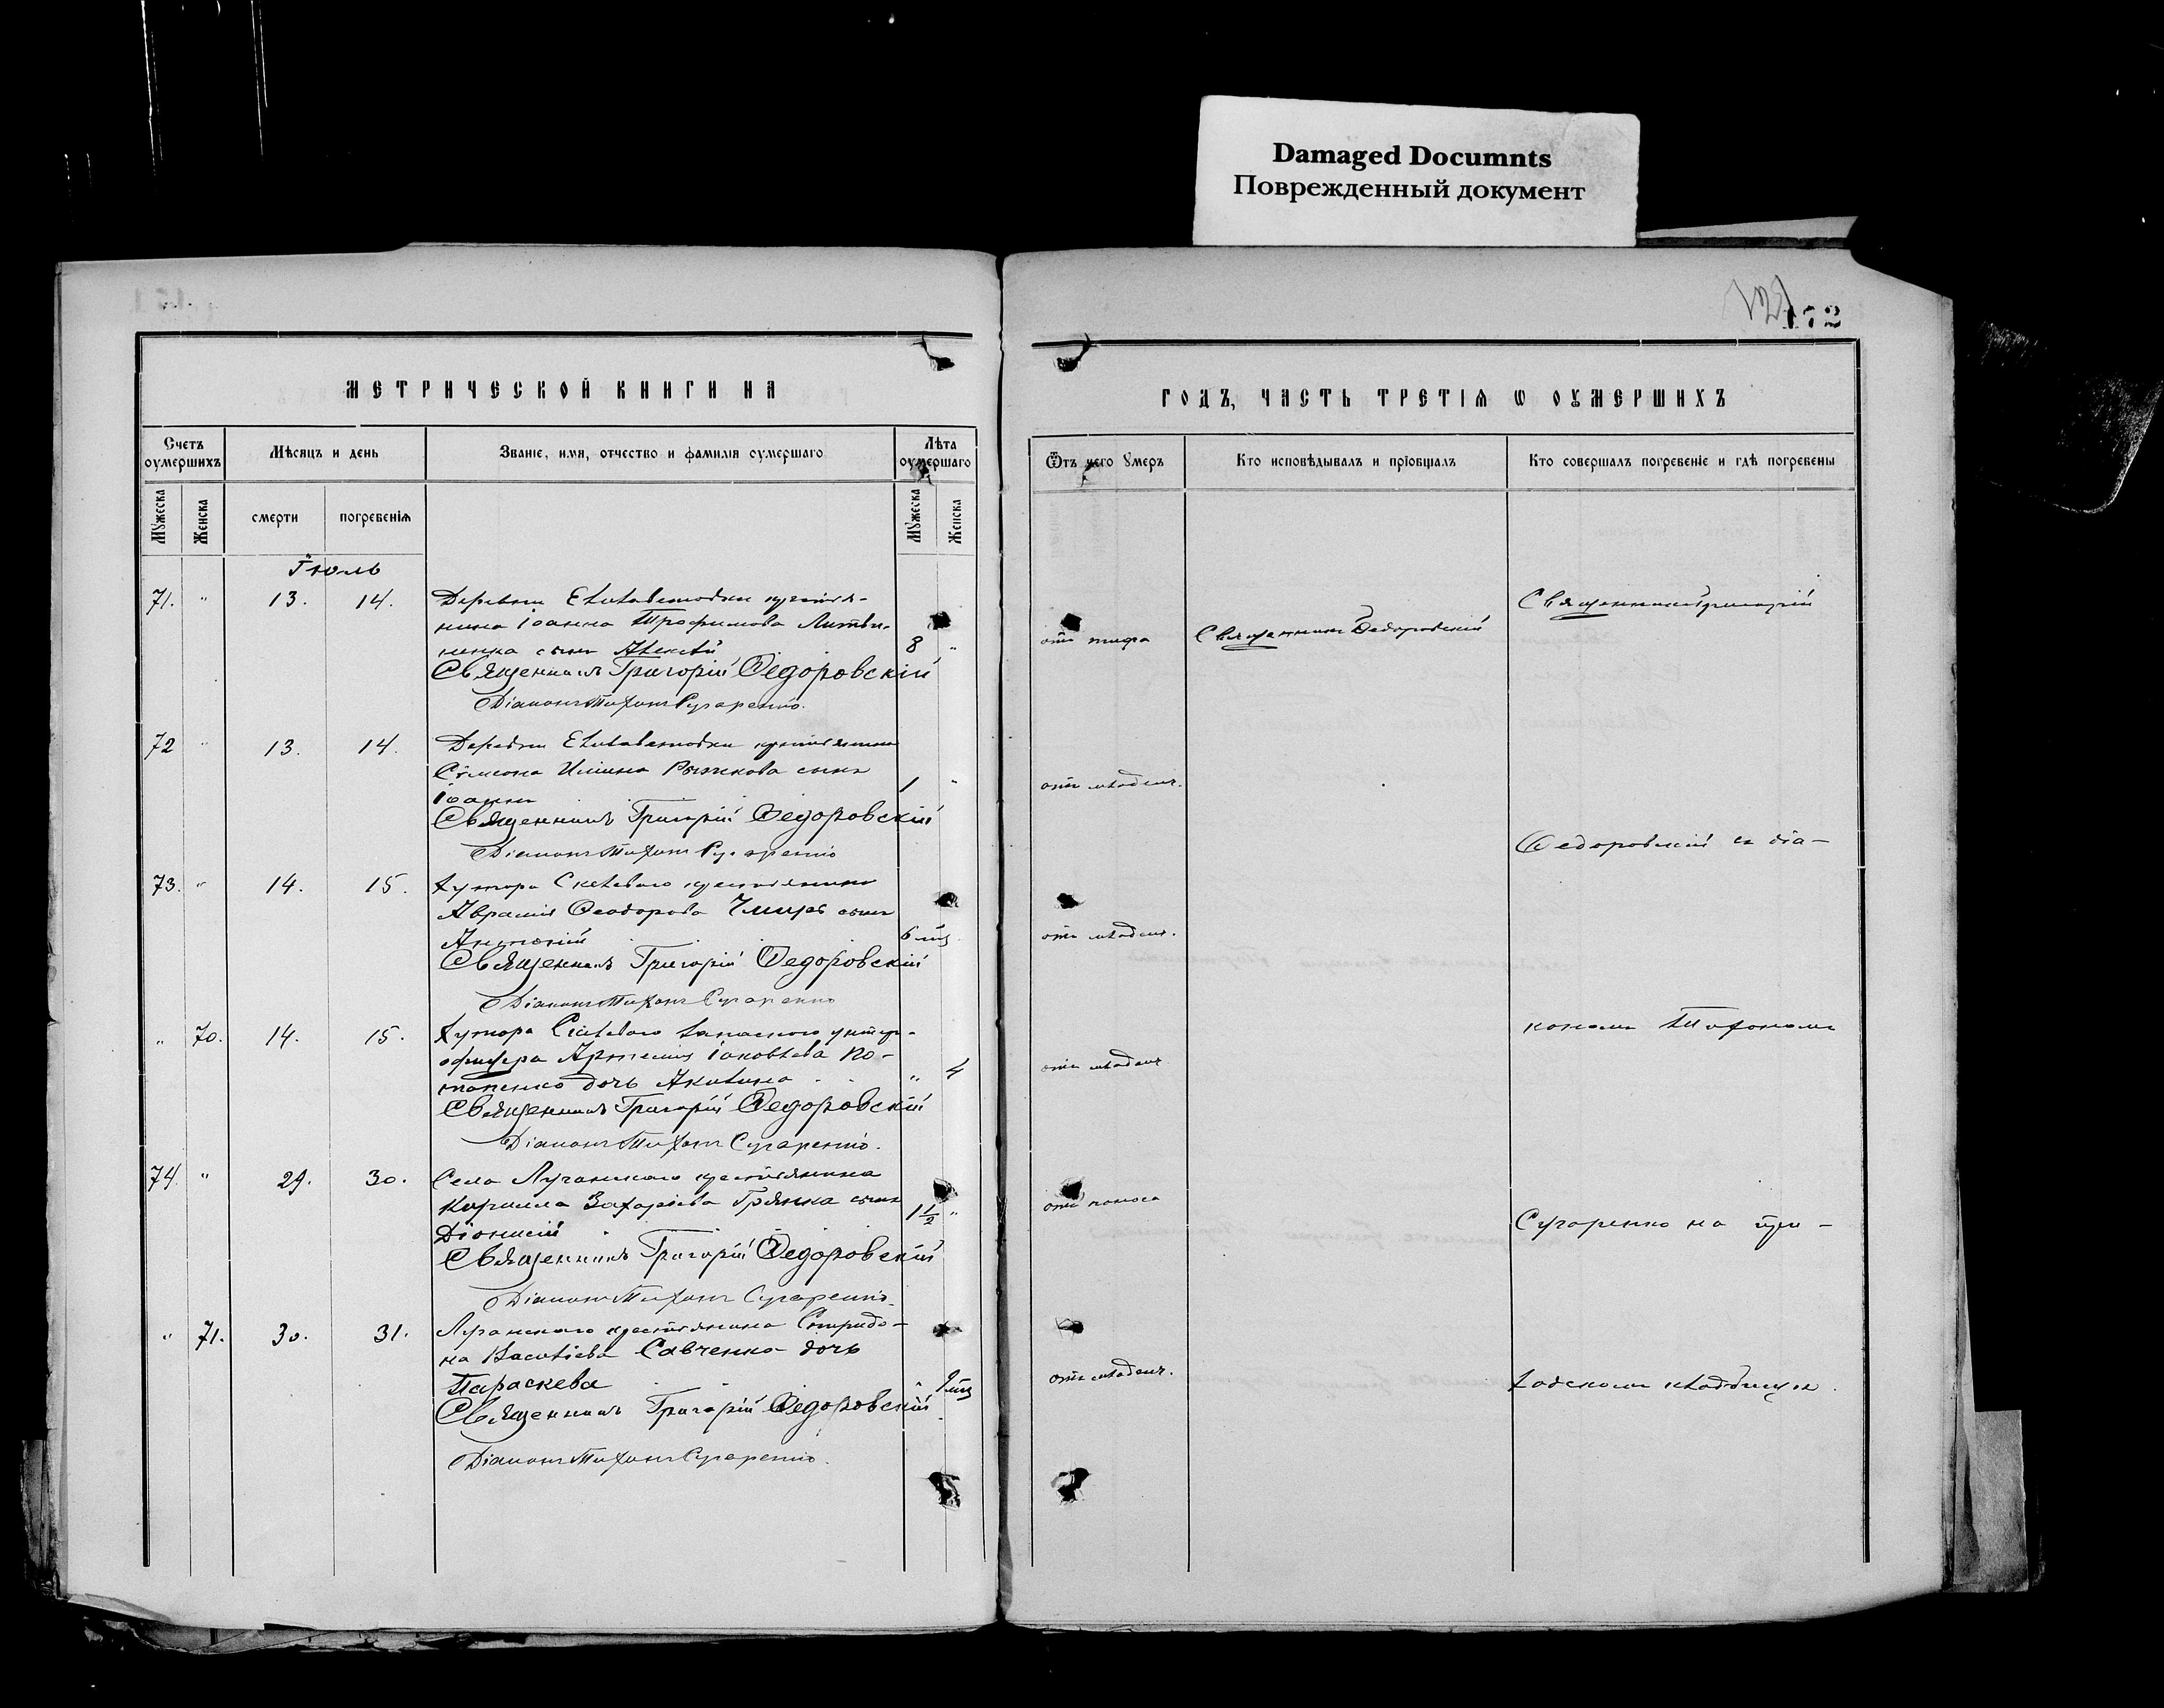 Damaged Documnts
Поврежденный документ
172
МЕТРИЧЕСКОЙ КНИГИ НА
ГОДЪ, ЧАСТЬ ТРЕТІѦ Ѡ ОУМЕРШИХЪ
Счетъ оумершихъ
Мѣсяцъ и день
Званіе, имя, отчество и фамилія оумершаго
Лѣта оумершаго
Ѿтъ чего Умеръ
Кто исповѣдывалъ и пріобщалъ
Кто совершалъ погребеніе и гдѣ погребены
Мужеска
Женска
смерти
погребенія
Мужеска
Женска
Іюль
71. " 13. 14. Деревни крестья-
нина Іоанна Трофимова Литви-
ненка сынъ Алексѣй 8 "
Священникъ Григорій Ѳедоровскій
Діаконъ Тихонъ Сугаренко.
отъ тифа
Священникъ Ѳедоровскій
Священникъ Григорій
72 " 13. 14. Деревни крестьянина
Сѵмеона Ильина Рыжкова сынъ
Іоаннъ 1 "
Священникъ Григорій Ѳедоровскій
Діаконъ Тихонъ Сугаренко
отъ младен.
Ѳедоровскій съ діа-
73. " 14. 15. Хутора крестьянина
Аврамія Ѳеодорова сынъ
Антоній 6 мѣс.
Священникъ Григорій Ѳедоровскій
Діаконъ Тихонъ Сугаренко
отъ младен.
" 70. 14. 15. Хутора запаснаго унтеръ-
офицера Артемія Іаковлева По-
тапенко дочь Акилина " 4
Священникъ Григорій Ѳедоровскій
Діаконъ Тихонъ Сугаренко.
отъ младен.
кономъ Тихономъ
74 " 29. 30. Села Луганскаго крестьянина
Кирилла Захаріева Грянка сынъ
Діонисій 1 1/2 "
Священникъ Григорій Ѳедоровскій
Діаконъ Тихонъ Сугаренко.
отъ поноса
Сугаренко на при-
" 71. 30. 31. Луганскаго крестьянина Спиридо-
на Василіева Савченко дочь
Параскева
Священникъ Григорій Ѳедоровскій
Діаконъ Тихонъ Сугаренко.
отъ младен.
ходскомъ кладбищѣ.